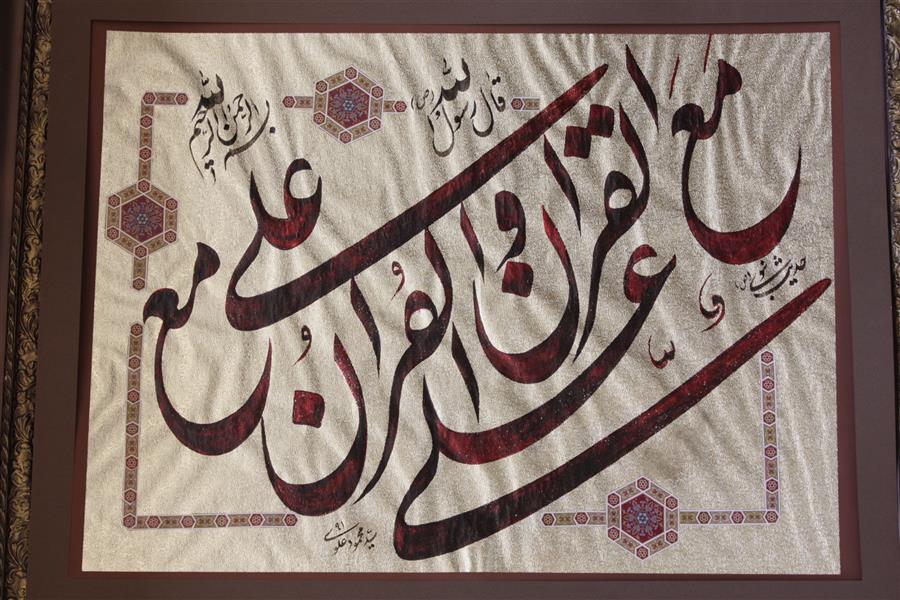 بسم الله الرحمن الرحیم
قال رسول الله (ص)
علی مع القرآن و القرآن مع علی
حدیث نبوی
سید محمود علوی ۹۱